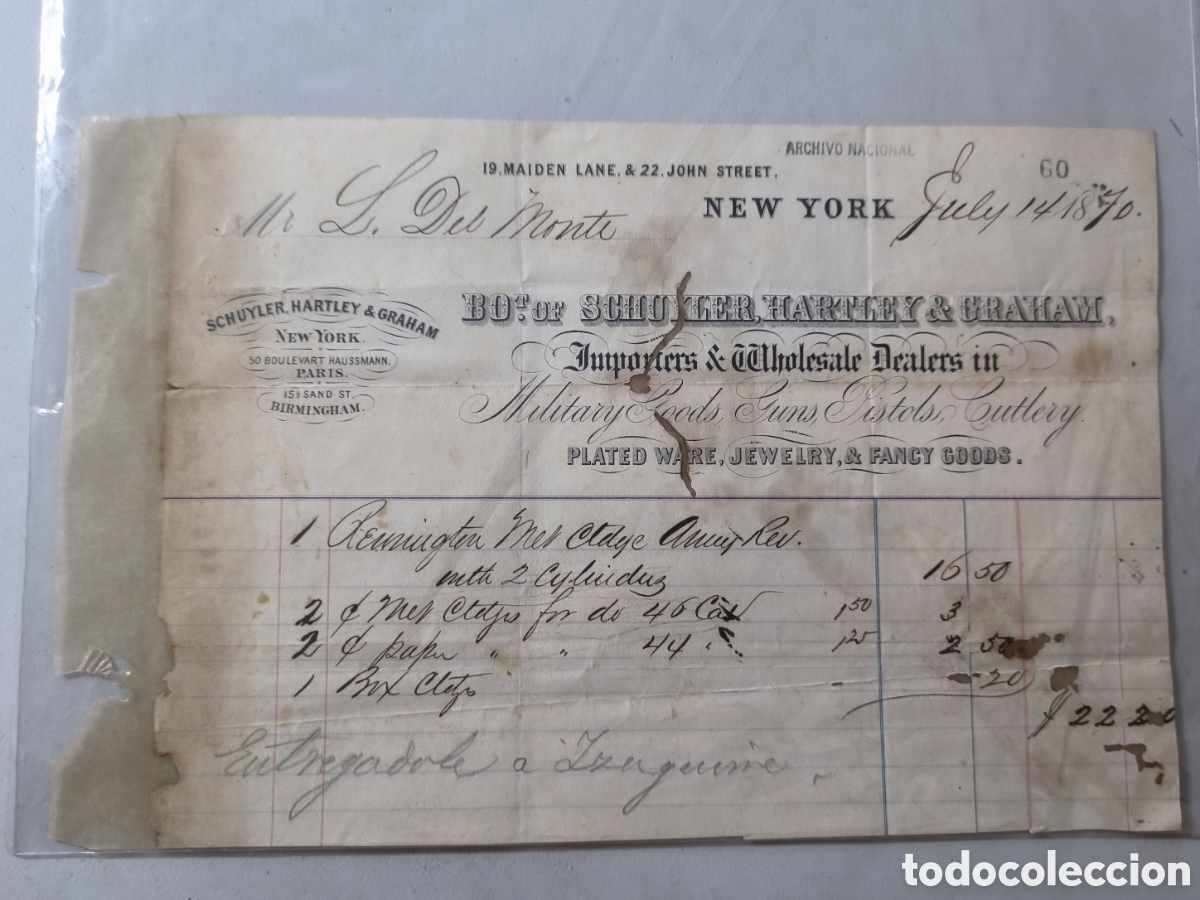 ARCHIVO NACIONAL
60
19. MAIDEN LANE, & 22. JOHN STREET.
NEW YORK July 14 1870.
Mr L. Del Monte
SCHUYLER, HARTLEY & GRAHAM
NEW YORK.
50 BOULEVART HAUSSMANN.
PARIS.
15½ SAND ST.
BIRMINGHAM.
BOT. OF SCHUYLER, HARTLEY & GRAHAM,
Importers & Wholesale Dealers in
Military Goods, Guns, Pistols, Cutlery.
PLATED WARE, JEWELRY, & FANCY GOODS.
1 Remington Met Ctdge Army Rev.
with 2 Cylinders 16 50
2 ¢ Met Ctdgs for do 46 Cal 1 50 3
2 ¢ paper " " 44 " 1 25 2 50
1 Box Ctdgs - 20
$ 22 20
Entregadole a Izaguirre.
todocoleccion